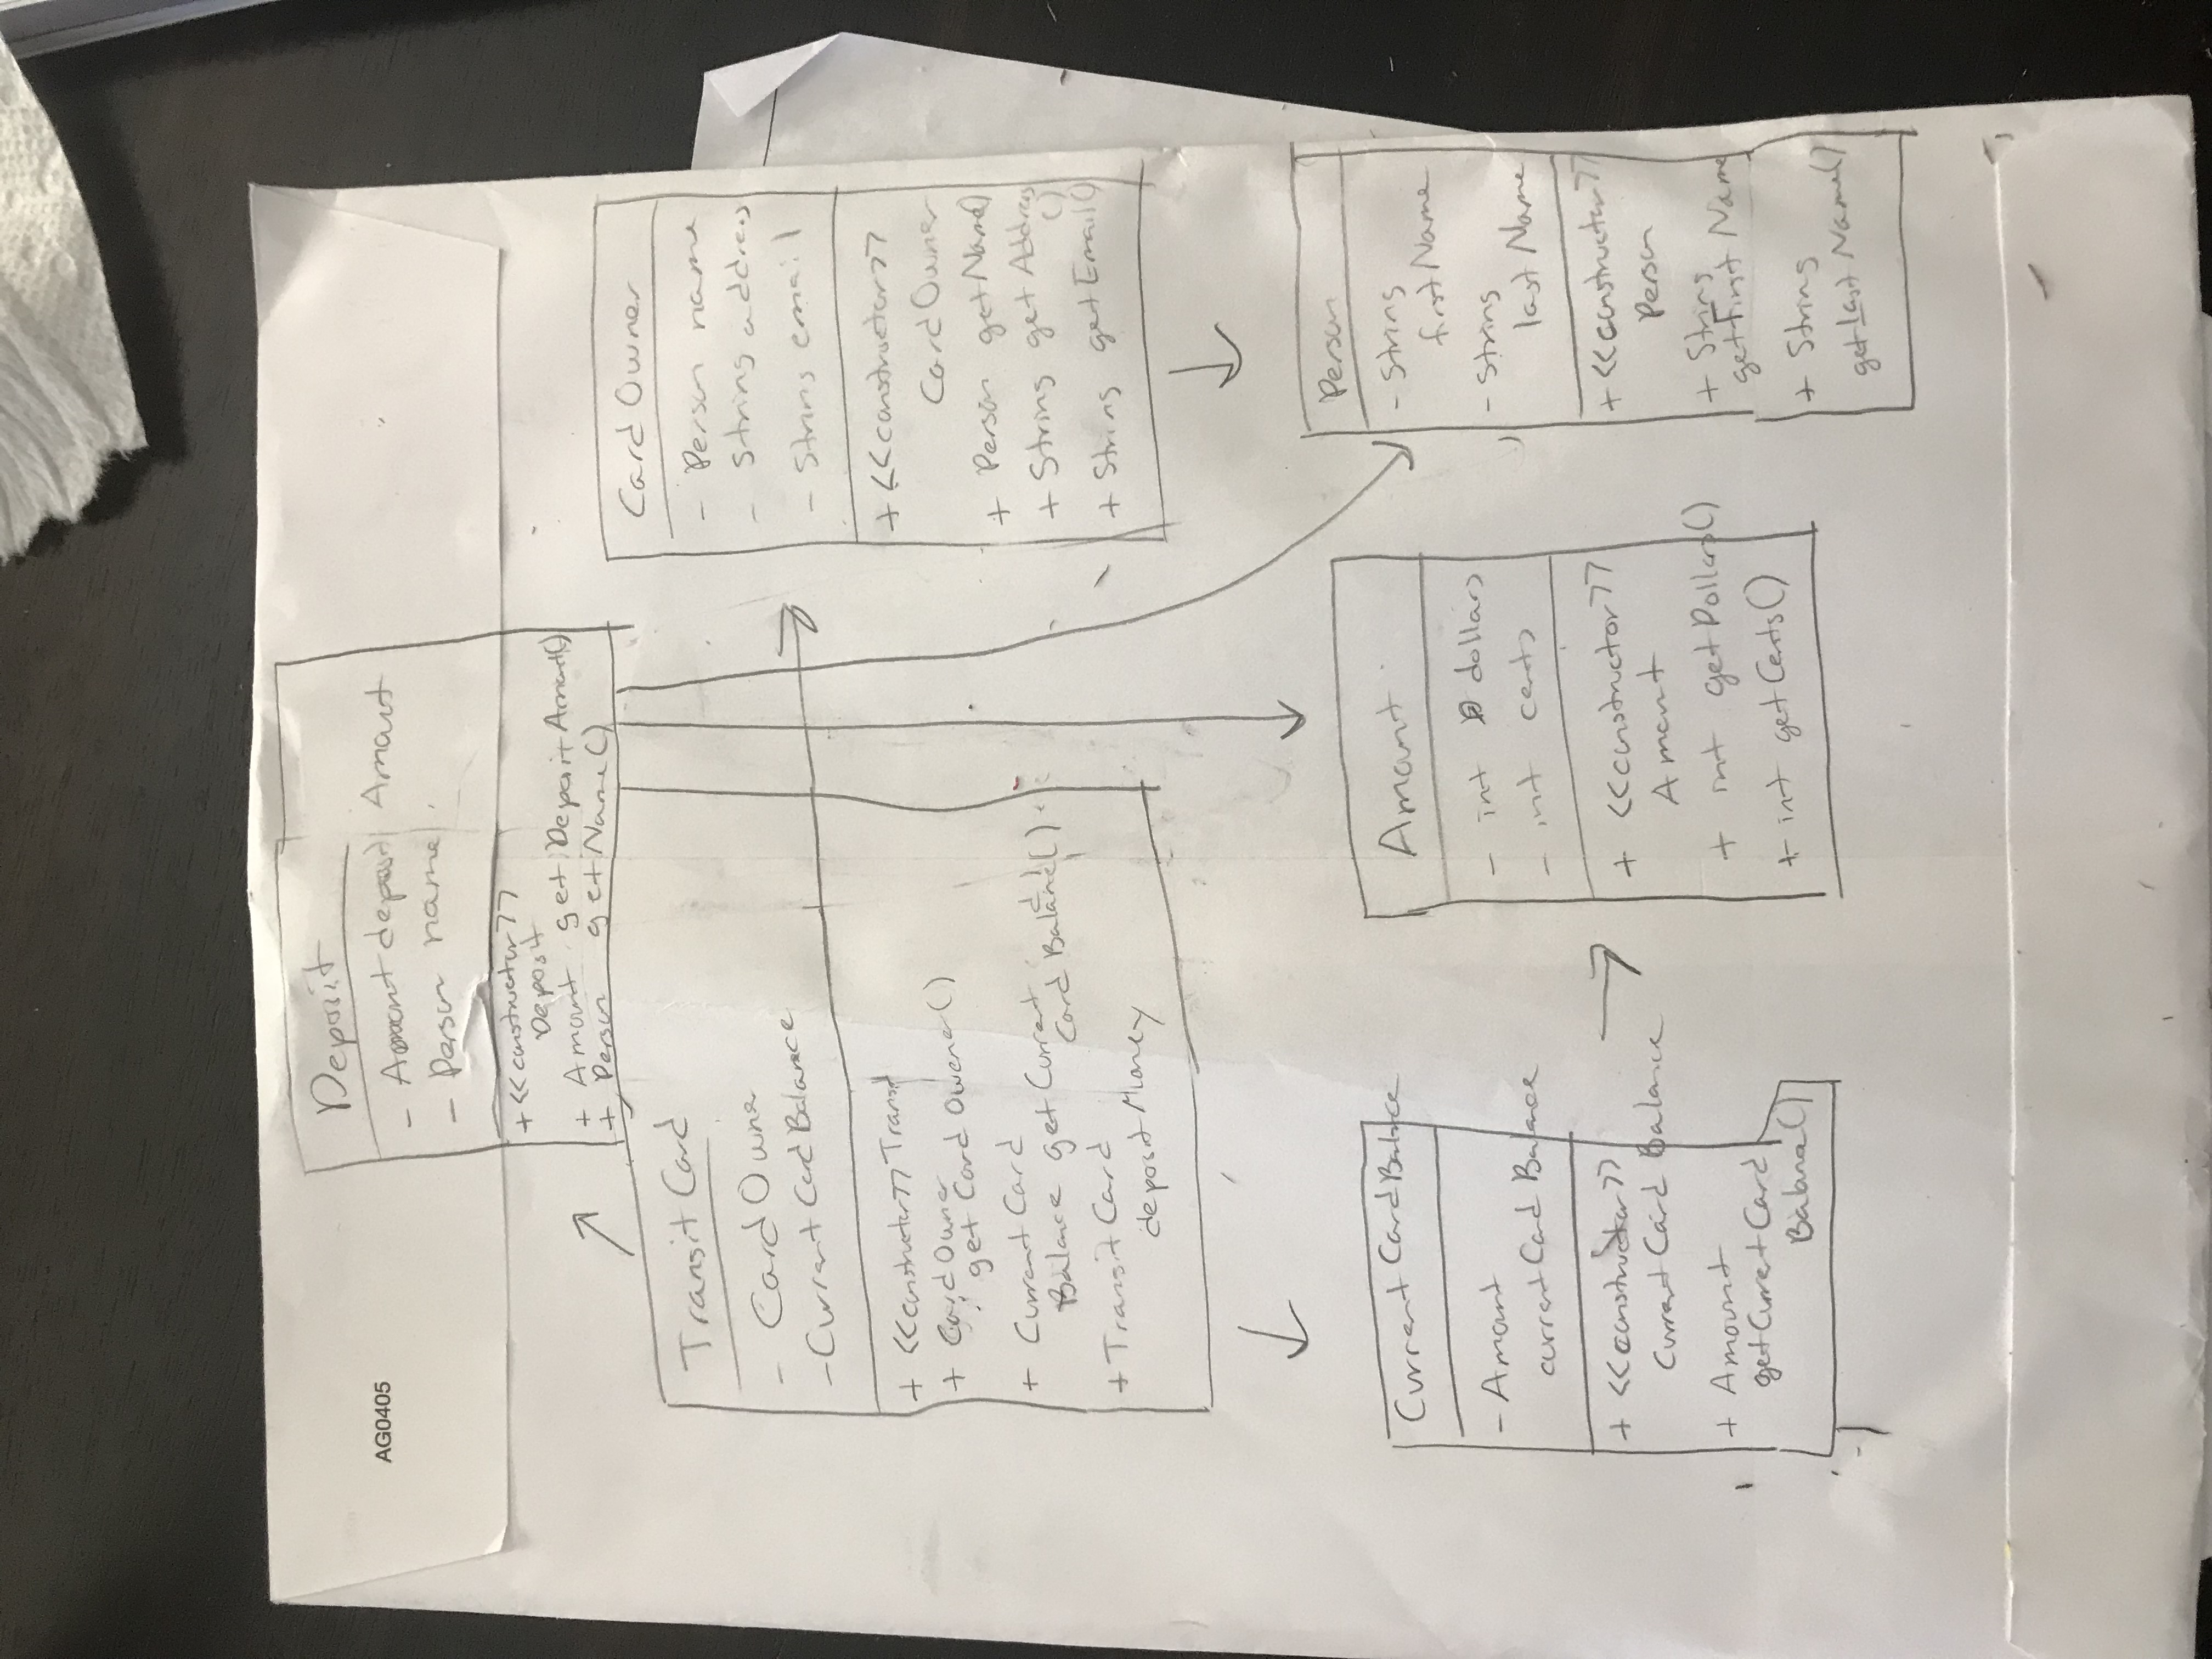 AG0405
Deposit
- Amount deposit Amount
- Person name
+ <<constructor>>
Deposit
+ Amount get Deposit Amount()
+ Person get Name()
Transit Card
- Card Owner
- Current Card Balance
+ <<constructor>> Transit
+ Card Owner
get Card Owener()
+ Current Card
Balance get Current
Card Balance()
+ Transit Card
deposit Money
Card Owner
- Person name
- String address
- String email
+ <<constructor>>
Card Owner
+ Person getName()
+ String get Address
()
+ String getEmail()
Current Card Balance
- Amount
current Card Balance
+ <<constructor>>
Current Card Balance
+ Amount
getCurrent Card
Balance()
Amount
- int dollars
- int cents
+ <<constructor>>
Amount
+ int getDollars()
+ int getCents()
Person
- String
first Name
- String
last Name
+ <<constructor>>
Person
+ String
getFirst Name
+ String
get last Name()